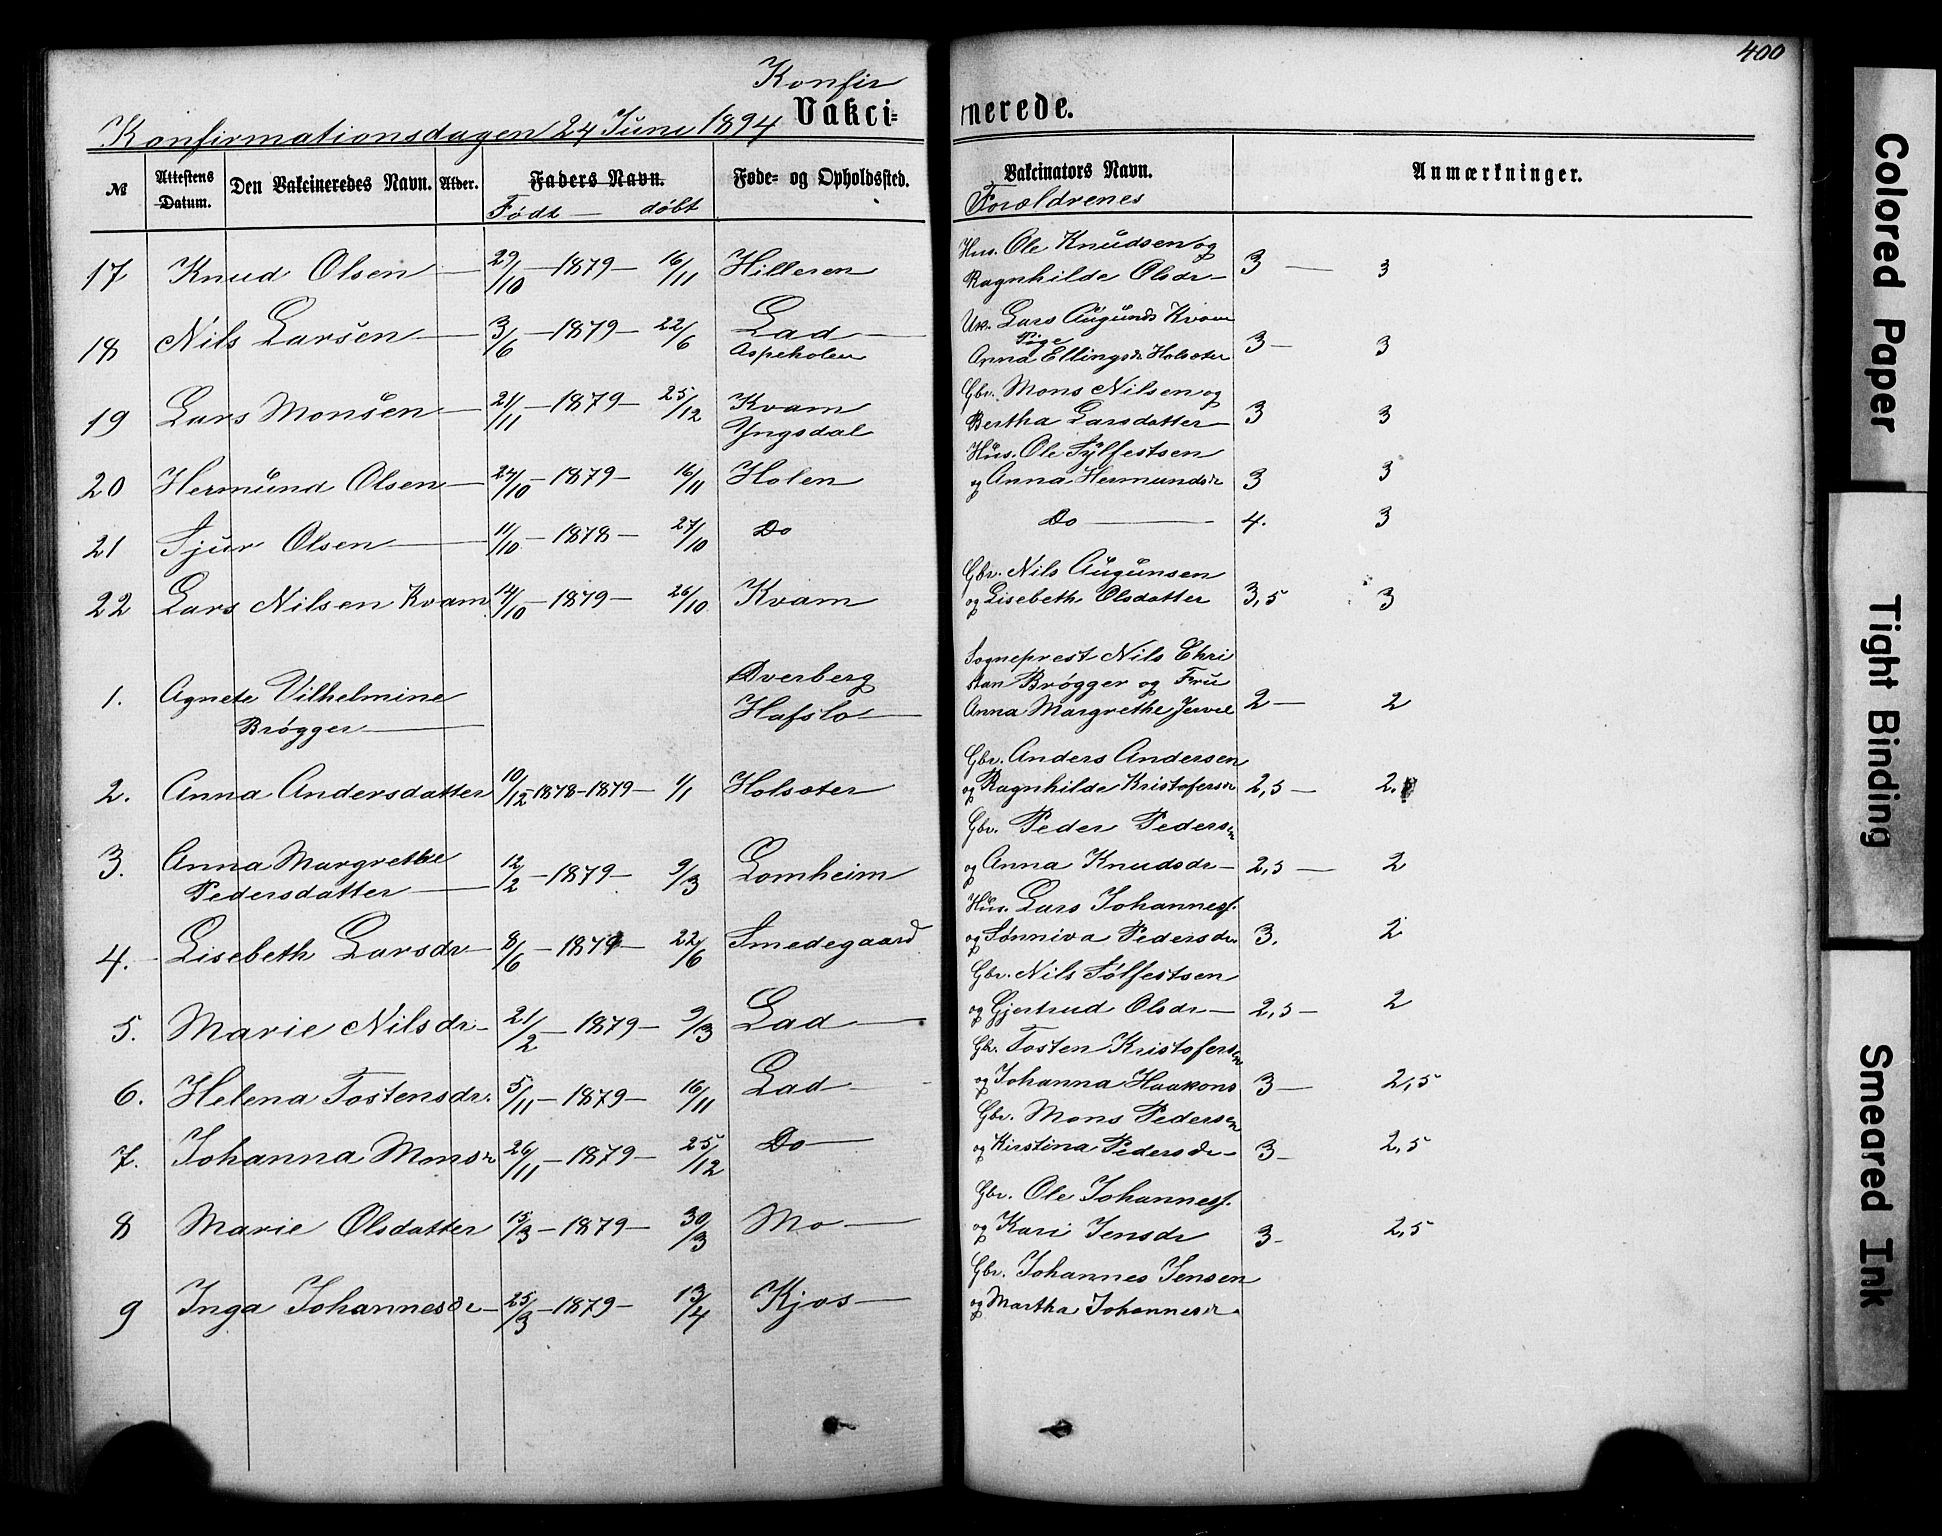 400
Konfir
Vakci=
nerede.
Konfirmationsdagen 24 Juni 1894
№ Attestens Datum. Den Vakcineredes Navn. Alder. Faders Navn. Føde= og Opholdssted. Vakcinators Navn. Anmærkninger.
Født — døbt Forældrenes
Hus. Ole Knudsen og
17 Knud Olsen — 29/10 — 1879 — 16/11 Hilleren Ragnhilde Olsdr — 3 — 3
Uk. Lars Augunds Kvam
18 Nils Larsen — 3/6 — 1879 — 22/6 Lad — Pige 3 — 3
Aspeholen Anna Ellingsdr Holsæter
Gbr. Mons Nilsen og
19 Lars Monsen — 21/11 — 1879 — 25/12 Kvam Bertha Larsdatter — 3 3
Yngsdal
Hus. Ole Sylfestsen
20 Hermund Olsen — 24/10 — 1879 — 16/11 Holen og Anna Hermundsdr 3 3
21 Sjur Olsen — 11/10 — 1878 — 27/10 Do Do — 4. 3
Gbr. Nils Augunsen
22 Lars Nilsen Kvam 14/10 — 1879 — 26/10 Kvam og Lisebeth Olsdatter 3,5 3
Sogneprest Nils Chri
Dverberg stan Brøgger og Fru
1. Agnete Vilhelmine Hafslo — Anna Margrethe 2 — 2
Brøgger —
Gbr. Anders Andersen
2. Anna Andersdatter 10/12 1878-1879 — 1/1 Holsæter og Ragnhilde Kristofersdr 2,5 — 2.
Gbr. Peder Pedersen
3. Anna Margrethe 12/2 — 1879 — 9/3 Lomheim og Anna Knudsdr — 2,5 — 2
Pedersdatter —
Hus. Lars Johannesf.
4. Lisebeth Larsdr — 8/6 — 1879 22/6 Smedegaard og Sønniva Pedersdr 3. 2
Gbr. Nils Sølfestsen
5. Marie Nilsdr — 21/2 — 1879 — 9/3 Lad — og Gjertrud Olsdr — 2,5 — 2
Gbr. Tosten Kristofersen
6. Helena Tostensdr. 5/11 — 1879 — 16/11 Lad — og Johanna Haakons 3 — 2,5
Gbr. Mons Pedersen
7. Johanna Monsdr 26/11 — 1879 — 25/12 Do — og Kirstina Pedersdr — 3 — 2,5
Gbr. Ole Johannesf.
8 Marie Olsdatter 15/3 — 1879 — 30/3 Mo — og Kari Jensdr 3 — 2,5
Gbr. Johannes Jensen
9 Inga Johannesdr — 25/3 — 1879 — 13/4 Kjos — og Martha Johannesdr
Colored Paper
Tight Binding
Smeared Ink